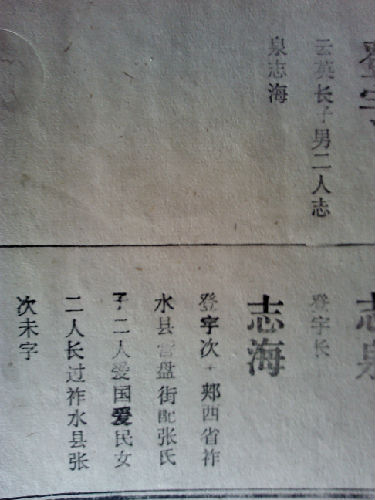 登宇
云英长子男二人志
泉志海
志泉
登宇长
志海
登宇次 郏西省祚
水县营盘街配张氏
子二人爱国爱民女
二人长过祚水县张
次未字